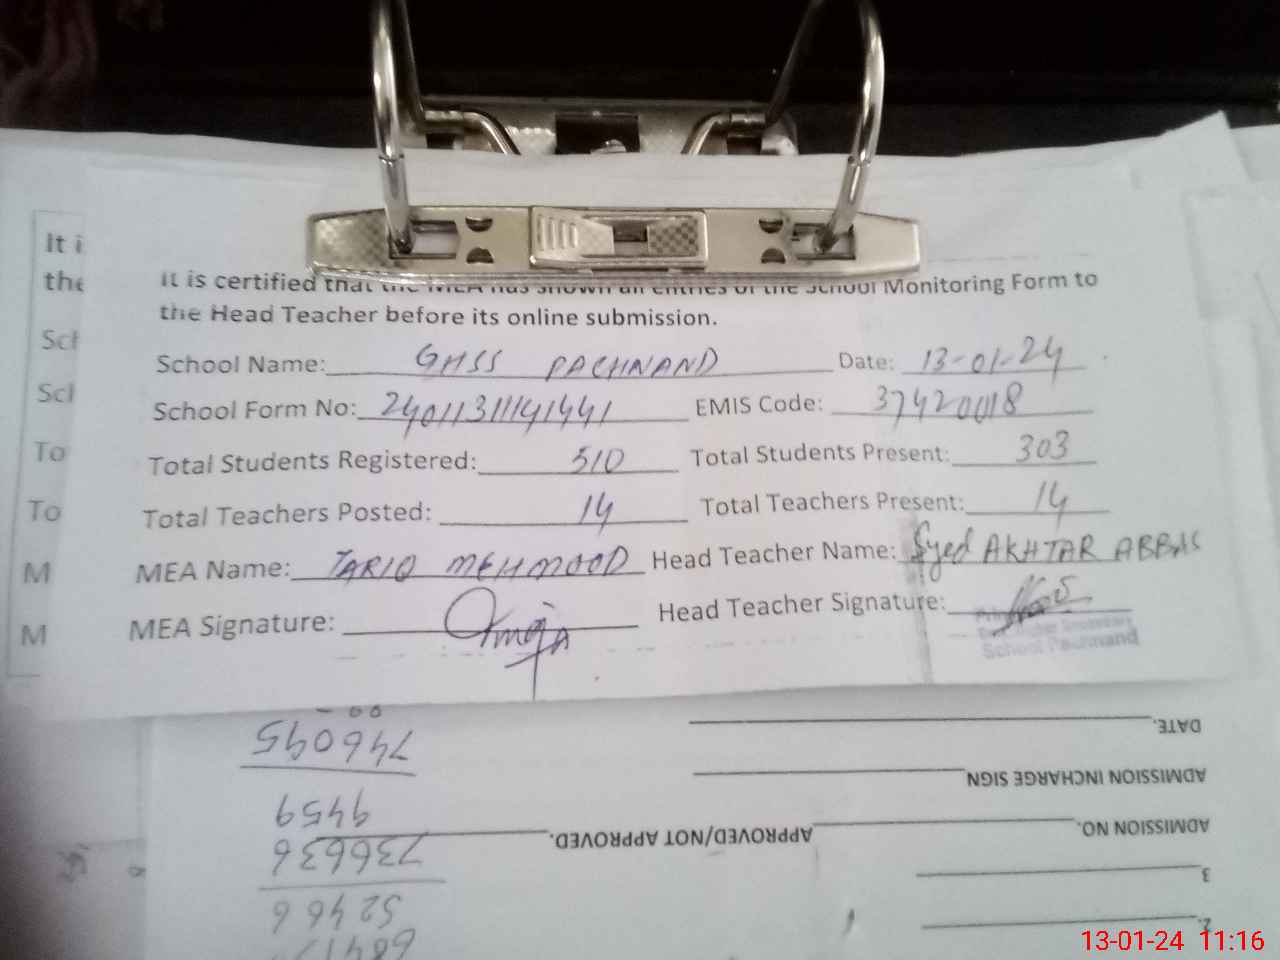 It i
the
Sch
Scl
To
To
M
M
It is certified that the MEA has shown all entries of the School Monitoring Form to
the Head Teacher before its online submission.
School Name: GHSS PACHNAND Date: 13-01-24
School Form No: 24011311141441 EMIS Code: 37420018
Total Students Registered: 510 Total Students Present: 303
Total Teachers Posted: 14 Total Teachers Present: 14
MEA Name: TARIQ MEHMOOD Head Teacher Name: Syed AKHTAR ABBAS
MEA Signature: Head Teacher Signature:
School Pachnand
DATE.
746095
ADMISSION INCHARGE SIGN
9459
ADMISSION NO. APPROVED/NOT APPROVED.
736636
3
52466
2.
13-01-24 11:16